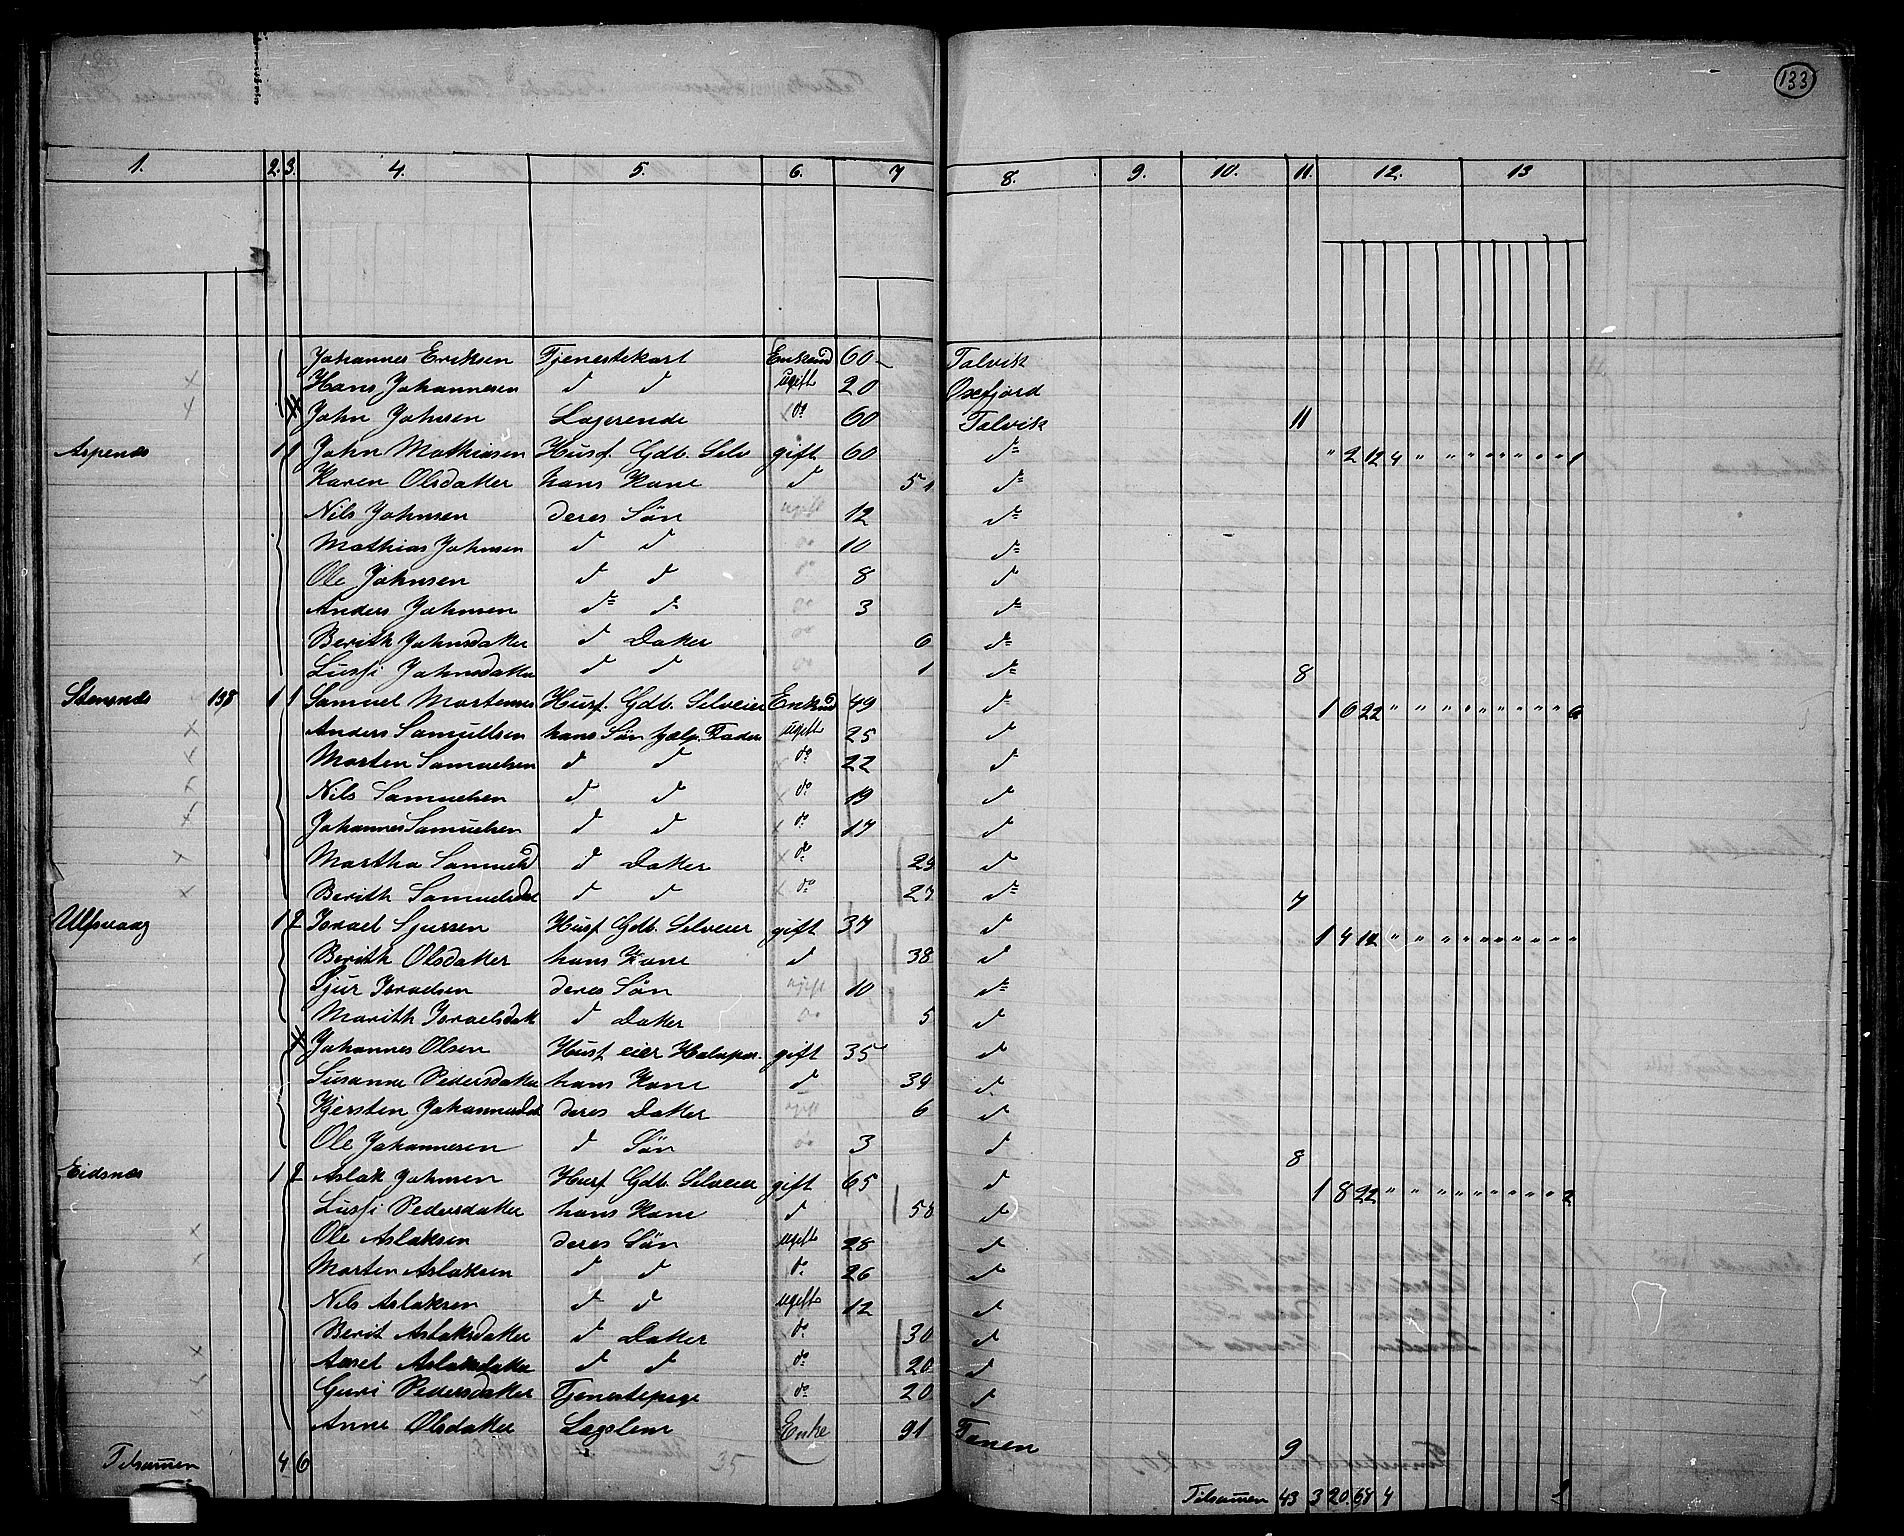 133
1. 2. 3. 4. 5. 6. 7 8. 9. 10. 11. 12. 13
Johannes Eriksen Tjenestekarl Enkemd 60 Talvik
Hans Johannesen d d ugift 20 Oxefjord
John Johnsen Logerende do 60 Talvik 11
Aspenes 1 1 John Mathiasen Husf. Gdb. Selv gift 60 do " 2 12 4 " " " " " " " " 1
Karen Olsdatter hans Kone d 51 do
Nils Johnsen deres Søn ugift 12 do
Mathias Johnsen d d do 10 do
Ole Johnsen d d do 8 d
Anders Johnsen do do do 3 do
Berith Johnsdatter d Datter do 6 do
Lussi Johnsdatter d d do 1 do 8
Stensnes 198 1 1 Samuel Mortensen Husf. Gdb. Selveier Enkemd 49 do 1 6 22 " " " " " " " " " 6
Anders Samuelsen hans Søn hjælp. Fader ugift 25 d
Morten Samuelsen d d do 22 d
Nils Samuelsen d d do 19 d
Johannes Samuelsen d d do 17 d
Martha Samuelsd d Datter do 29 d
Berith Samuelsdat d d do 27 do 7
Ulfsvaag 1 2 Israel Sjursen Husf Gdb. Selveier gift 37 d 1 4 12 " " " " " " " " " "
Berith Olsdatter hans Kone d 38 d
Sjur Israelsen deres Søn ugift 10 do
Marith Israelsdatt d Datter do 5 d
Johannes Olsen Husf eier Halvpar. gift 35 d
Susanne Pedersdatter hans Kone d 39 d
Kjersten Johannesdat deres Datter ugift 6 d
Ole Johannesen d Søn do 3 d 8
Eidsnes 1 2 Aslak Johnsen Husf Gdb. Selveier gift 65 d 1 8 22 " " " " " " " " " 2
Lussi Pedersdatter hans Kone d 58 d
Ole Aslaksen deres Søn ugift 28 d
Morten Aslaksen d d do 26 d
Nils Aslaksen d d ugift 12 d
Berit Aslaksdatter d Datter do 30 d
Aaset Aslaksdatter d d do 20 d
Guri Pedersdatter Tjenestepige do 20 d
Anne Olsdatter Lægslem Enke 91 Tanen 9
Tilsammen 4 6 35
Tilsammen 43 3 20 68 4